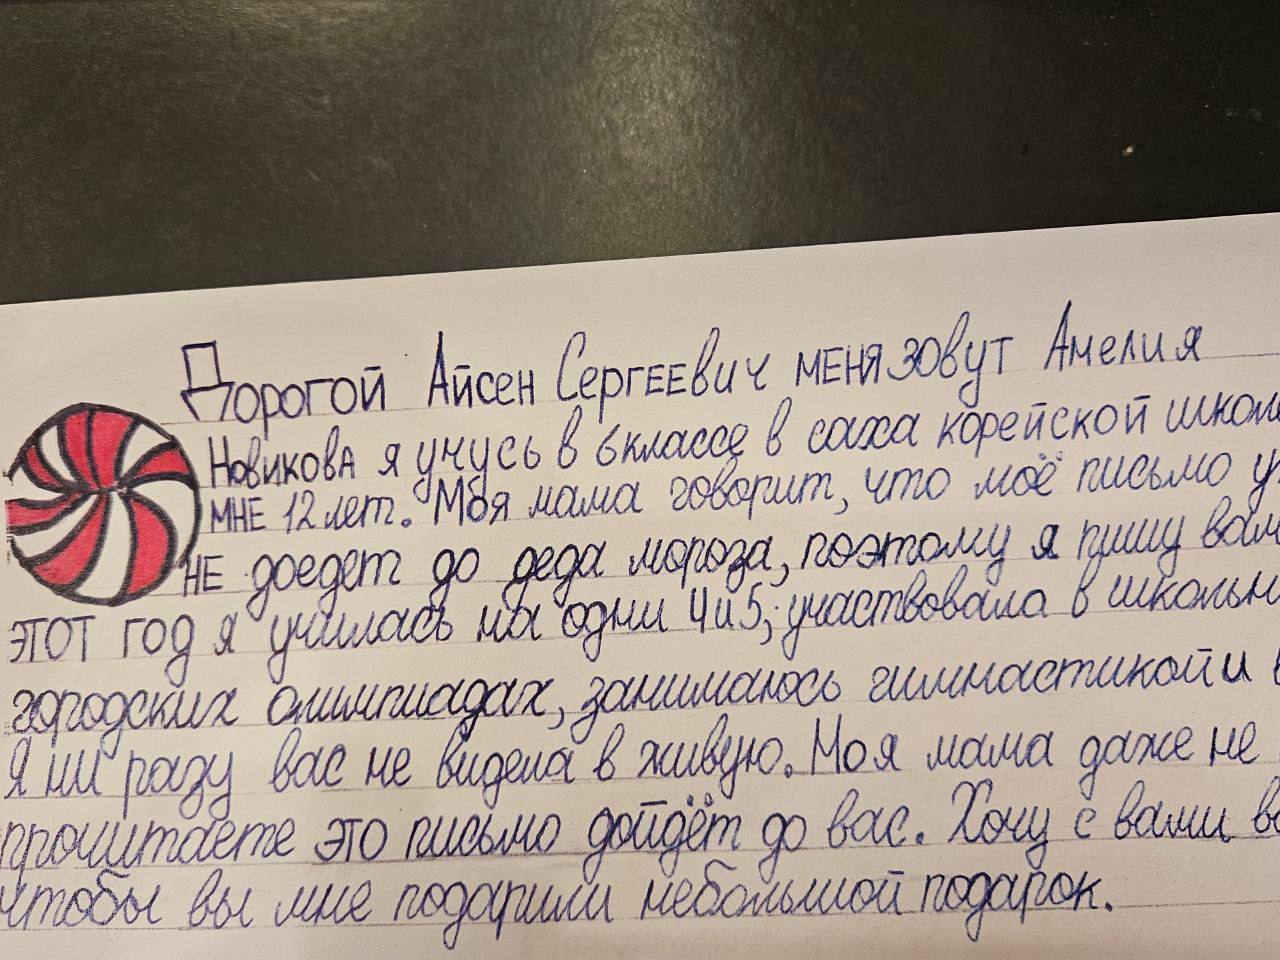 Дорогой Айсен Сергеевич меня зовут Амелия
Новикова я учусь в 6 классе в саха корейской школ
мне 12 лет. Моя мама говорит, что моё письмо у
не доедет до деда мороза, поэтому я пишу вам
этот год я училась на одни 4 и 5, участвовала в школьн
городских олимпиадах, занимаюсь гимнастикой и
Я ни разу вас не видела в живую. Моя мама даже не
прочитаете это письмо дойдёт до вас. Хочу с вами вс
чтобы вы мне подарили небольшой подарок.